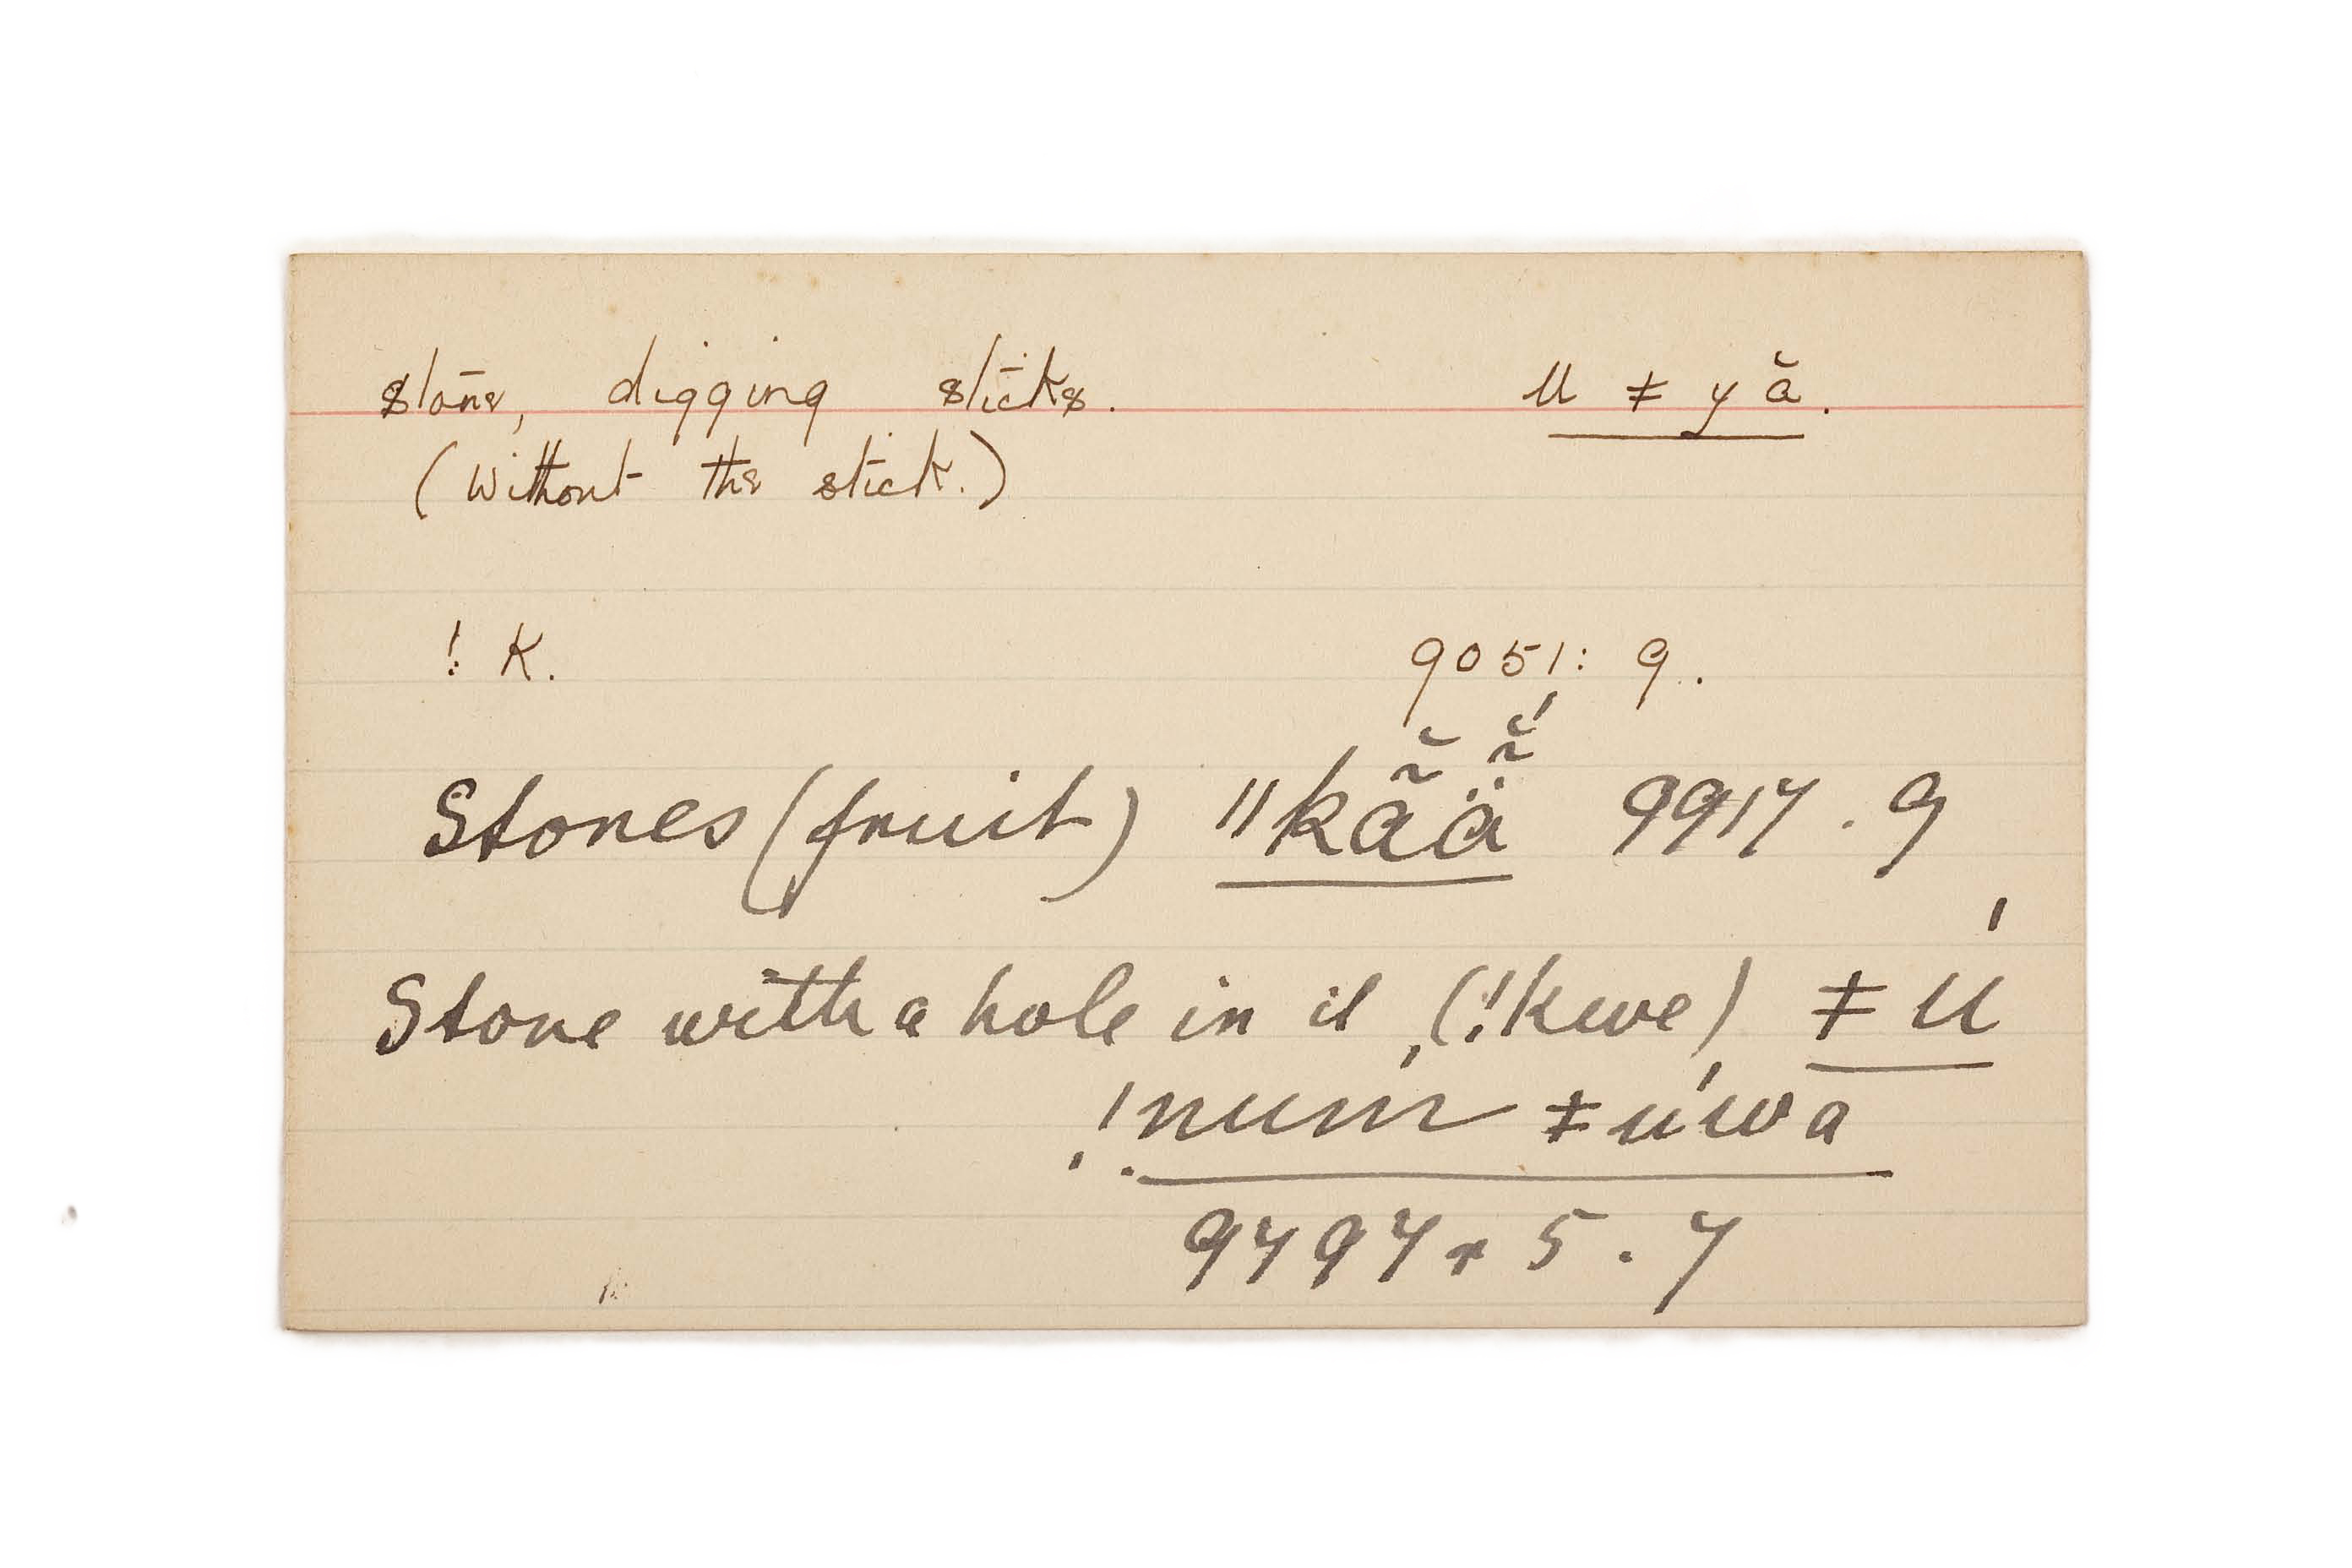 stone, digging sticks. u ǂ y ă.
(without the stick.)
! K. 9051: 9.
Stones (fruit) ǁkã̆ä̃̆́ 9917. 9
Stone with a hole in it, (!kwe) ǂ ú
!num ǂúwa
9797 + 5. 7